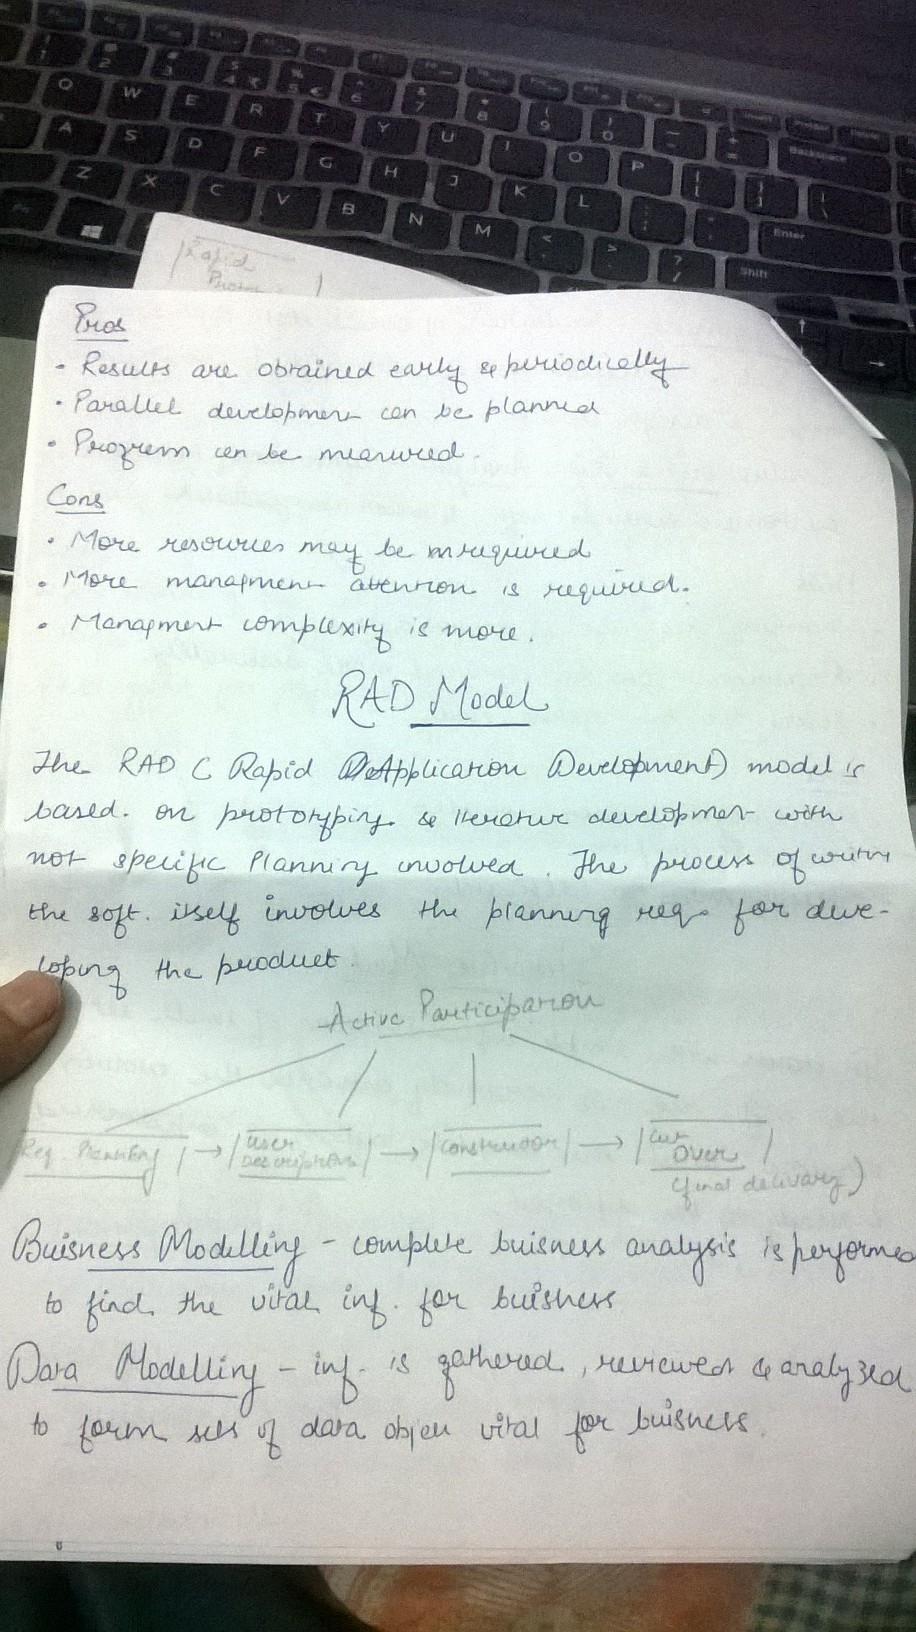 Rapid
Pros
• Results are obtained early & periodically
• Parallel development can be planned
• Progress can be measured.
Cons
• More resources may be required
• More managment attention is required.
• Managment complexity is more.
RAD Model
The RAD ( Rapid Application Development) model is
based. on prototyping & iterative development with
not specific Planning involved. The process of writing
the soft. itself involves the planning req. for deve-
loping the product.
Active Participation
Req. Planning → User Description → Construction → Cut Over
(final delivary)
Buisness Modelling - complete buisness analysis is performed
to find the vital inf. for buisness
Data Modelling - inf. is gathered, reviewed & analyzed
to form sets of data objec vital for buisness.